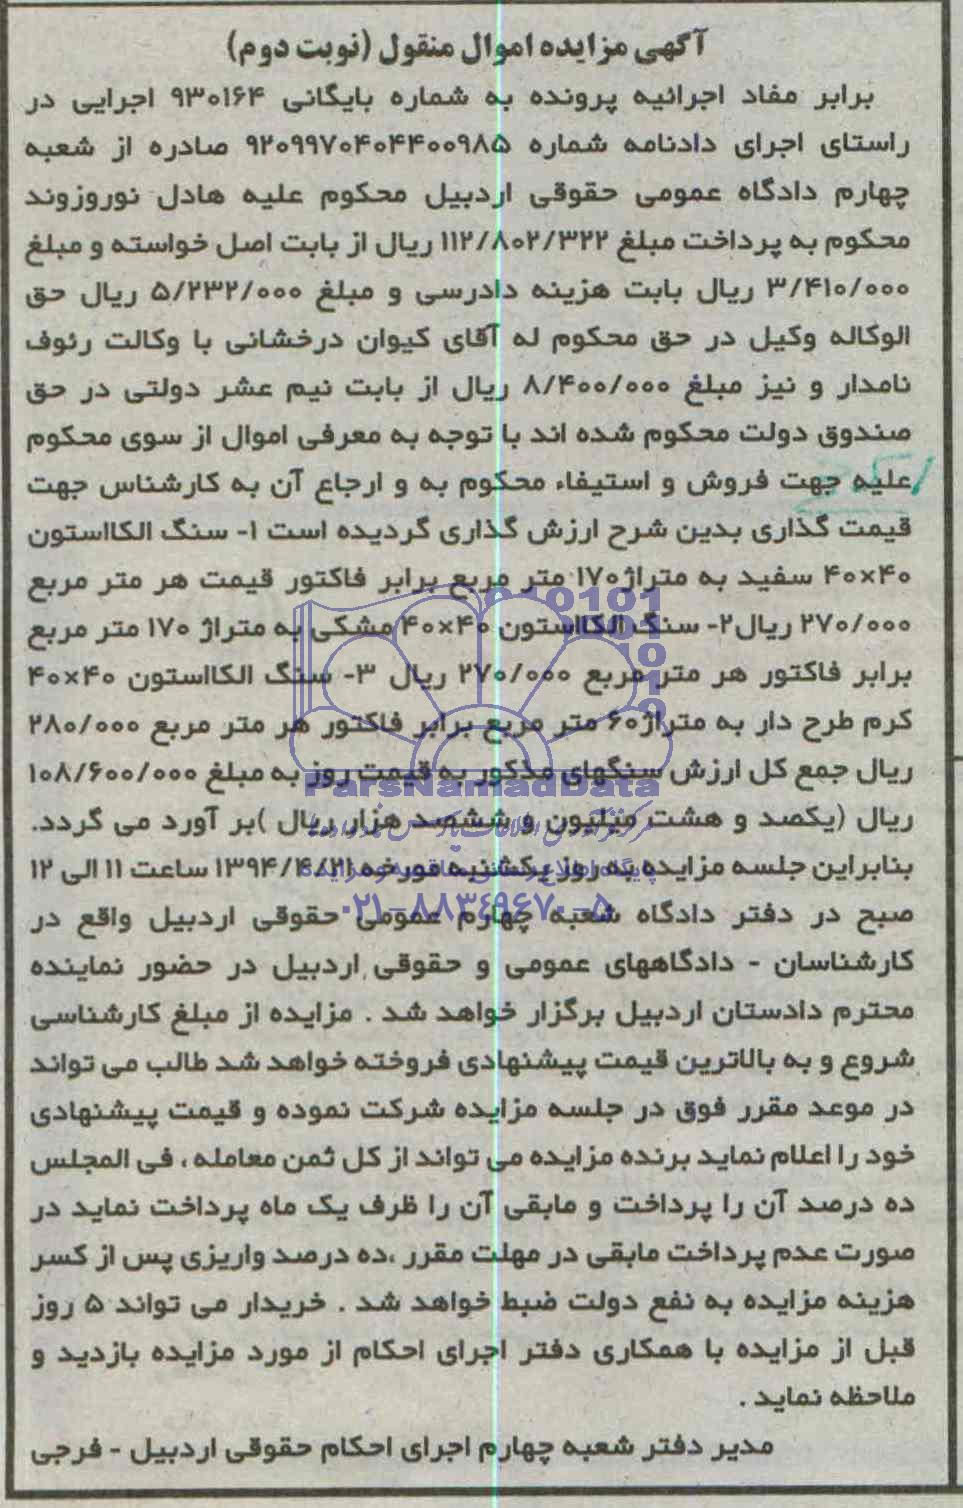 آگهی مزایده اموال منقول (نوبت دوم)
برابر مفاد اجرائیه پرونده به شماره بایگانی ۹۳۰۱۶۴ اجرایی در
راستای اجرای دادنامه شماره ۹۲۰۹۹۷۰۴۰۴۴۰۰۹۸۵ صادره از شعبه
چهارم دادگاه عمومی حقوقی اردبیل محکوم علیه هادل نوروزوند
محکوم به پرداخت مبلغ ۱۱۲/۸۰۲/۳۲۲ ریال از بابت اصل خواسته و مبلغ
۳/۴۱۰/۰۰۰ ریال بابت هزینه دادرسی و مبلغ ۵/۲۳۲/۰۰۰ ریال حق
الوکاله وکیل در حق محکوم له آقای کیوان درخشانی با وکالت رئوف
نامدار و نیز مبلغ ۸/۴۰۰/۰۰۰ ریال از بابت نیم عشر دولتی در حق
صندوق دولت محکوم شده اند با توجه به معرفی اموال از سوی محکوم
علیه جهت فروش و استیفاء محکوم به و ارجاع آن به کارشناس جهت
قیمت گذاری بدین شرح ارزش گذاری گردیده است ۱- سنگ الکااستون
۴۰×۴۰ سفید به متراژ۱۷۰ متر مربع برابر فاکتور قیمت هر متر مربع
۲۷۰/۰۰۰ ریال۲- سنگ الکااستون ۴۰×۴۰ مشکی به متراژ ۱۷۰ متر مربع
برابر فاکتور هر متر مربع ۲۷۰/۰۰۰ ریال ۳- سنگ الکااستون ۴۰×۴۰
کرم طرح دار به متراژ۶۰ متر مربع برابر فاکتور هر متر مربع ۲۸۰/۰۰۰
ریال جمع کل ارزش سنگهای مذکور به قیمت روز به مبلغ ۱۰۸/۶۰۰/۰۰۰
ParsNamadData
ریال (یکصد و هشت میلیون و ششصد هزار ریال )بر آورد می گردد.
بنابراین جلسه مزایده به روز یکشنبه مورخه ۱۳۹۴/۴/۲۱ ساعت ۱۱ الی ۱۲
۰۲۱-۸۸۳۴۹۶۷۰-۵
صبح در دفتر دادگاه شعبه چهارم عمومی حقوقی اردبیل واقع در
کارشناسان - دادگاههای عمومی و حقوقی اردبیل در حضور نماینده
محترم دادستان اردبیل برگزار خواهد شد . مزایده از مبلغ کارشناسی
شروع و به بالاترین قیمت پیشنهادی فروخته خواهد شد طالب می تواند
در موعد مقرر فوق در جلسه مزایده شرکت نموده و قیمت پیشنهادی
خود را اعلام نماید برنده مزایده می تواند از کل ثمن معامله ، فی المجلس
ده درصد آن را پرداخت و مابقی آن را ظرف یک ماه پرداخت نماید در
صورت عدم پرداخت مابقی در مهلت مقرر ،ده درصد واریزی پس از کسر
هزینه مزایده به نفع دولت ضبط خواهد شد . خریدار می تواند ۵ روز
قبل از مزایده با همکاری دفتر اجرای احکام از مورد مزایده بازدید و
ملاحظه نماید .
مدیر دفتر شعبه چهارم اجرای احکام حقوقی اردبیل - فرجی